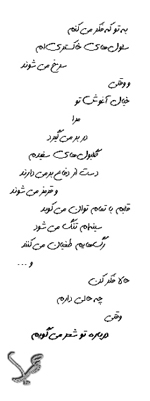 به تو که فکر می کنم
سلول های خاکستری ام
سرخ می شوند
و وقتی
خیال آغوش تو
مرا
در بر می گیرد
گلبول های سفیدم
دست از دفاع بر می دارند
و قرمز می شوند
قلبم با تمام توان می کوبد
سینه ام تنگ می شود
رگ هایم طغیان می کنند
و ...
حالا فکر کن
چه حالی دارم
وقتی
درباره تو شعر می گویم